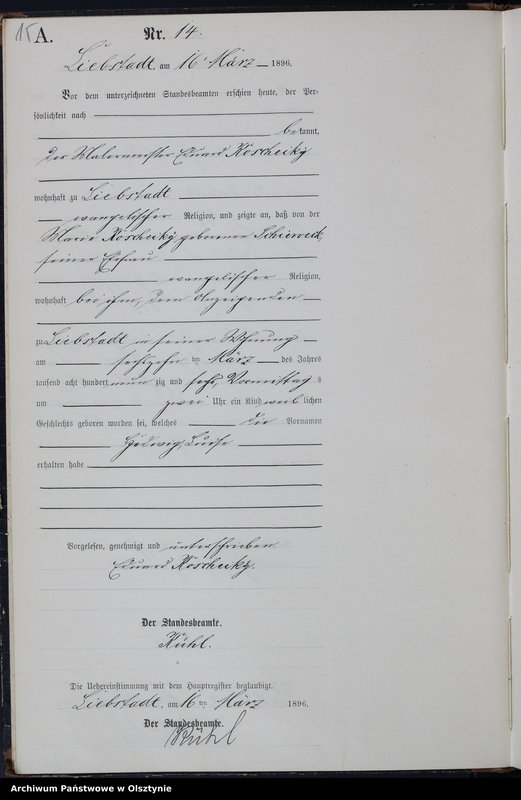 15 A. Nr. 14.
Liebstadt, am 16. März 1896.
Vor dem unterzeichneten Standesbeamten erschien heute, der Per-
sönlichkeit nach
bekannt,
der Malermeister Eduard Koscheiky
wohnhaft zu Liebstadt
evangelischer Religion, und zeigte an, daß von der
Marie Koscheiky geborenen
seiner Ehefrau
evangelischer Religion,
wohnhaft bei ihm, dem Anzeigenden
zu Liebstadt in seiner Wohnung
am sechszehn ten März des Jahres
tausend acht hundert neun zig und sechs, Vormittag s
um zwei Uhr ein Kind weib lichen
Geschlechts geboren worden sei, welches die Vornamen
Hedwig, Luise
erhalten habe
Vorgelesen, genehmigt und unterschrieben.
Eduard Koscheiky.
Der Standesbeamte.
Kühl.
Die Uebereinstimmung mit dem Hauptregister beglaubigt.
Liebstadt, am 16 ten März 1896.
Der Standesbeamte.
Kühl
Archiwum Państwowe w Olsztynie